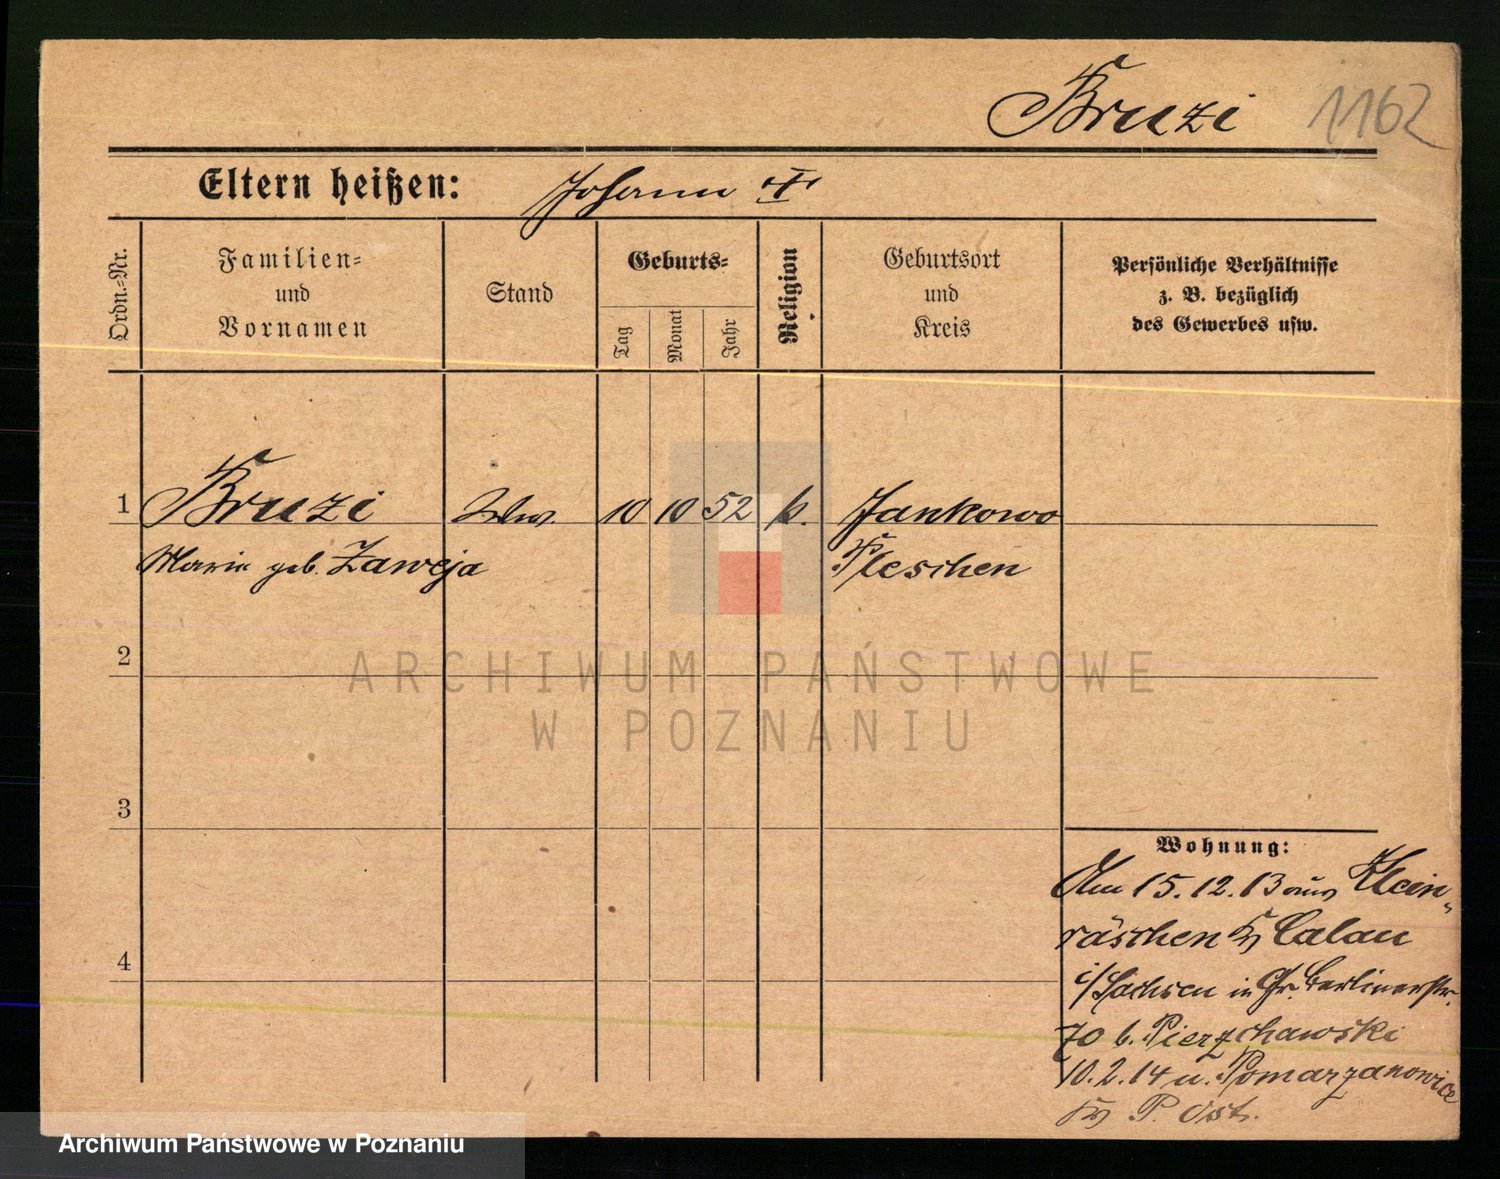 Bruzi 1162
Eltern heißen: Johann I
Ordn.=Nr.
Familien=
und
Vornamen
Stand
Geburts=
Tag
Monat
Jahr
Religion
Geburtsort
und
Kreis
Persönliche Verhältnisse
z. B. bezüglich
des Gewerbes usw.
1 Bruzi Ww. 10 10 52 k. Jankowo
Marie geb. Zaweja Pleschen
2
ARCHIWUM PAŃSTWOWE
W POZNANIU
3
Wohnung:
Am 15.12.13 aus Klein-
räschen Kr Calau
4
i/Sachsen in Gr. Berlinerstr.
70 b. Pierzchawski
10.2.14 n. Pomarzanowice
Kr P. Ost.
Archiwum Państwowe w Poznaniu